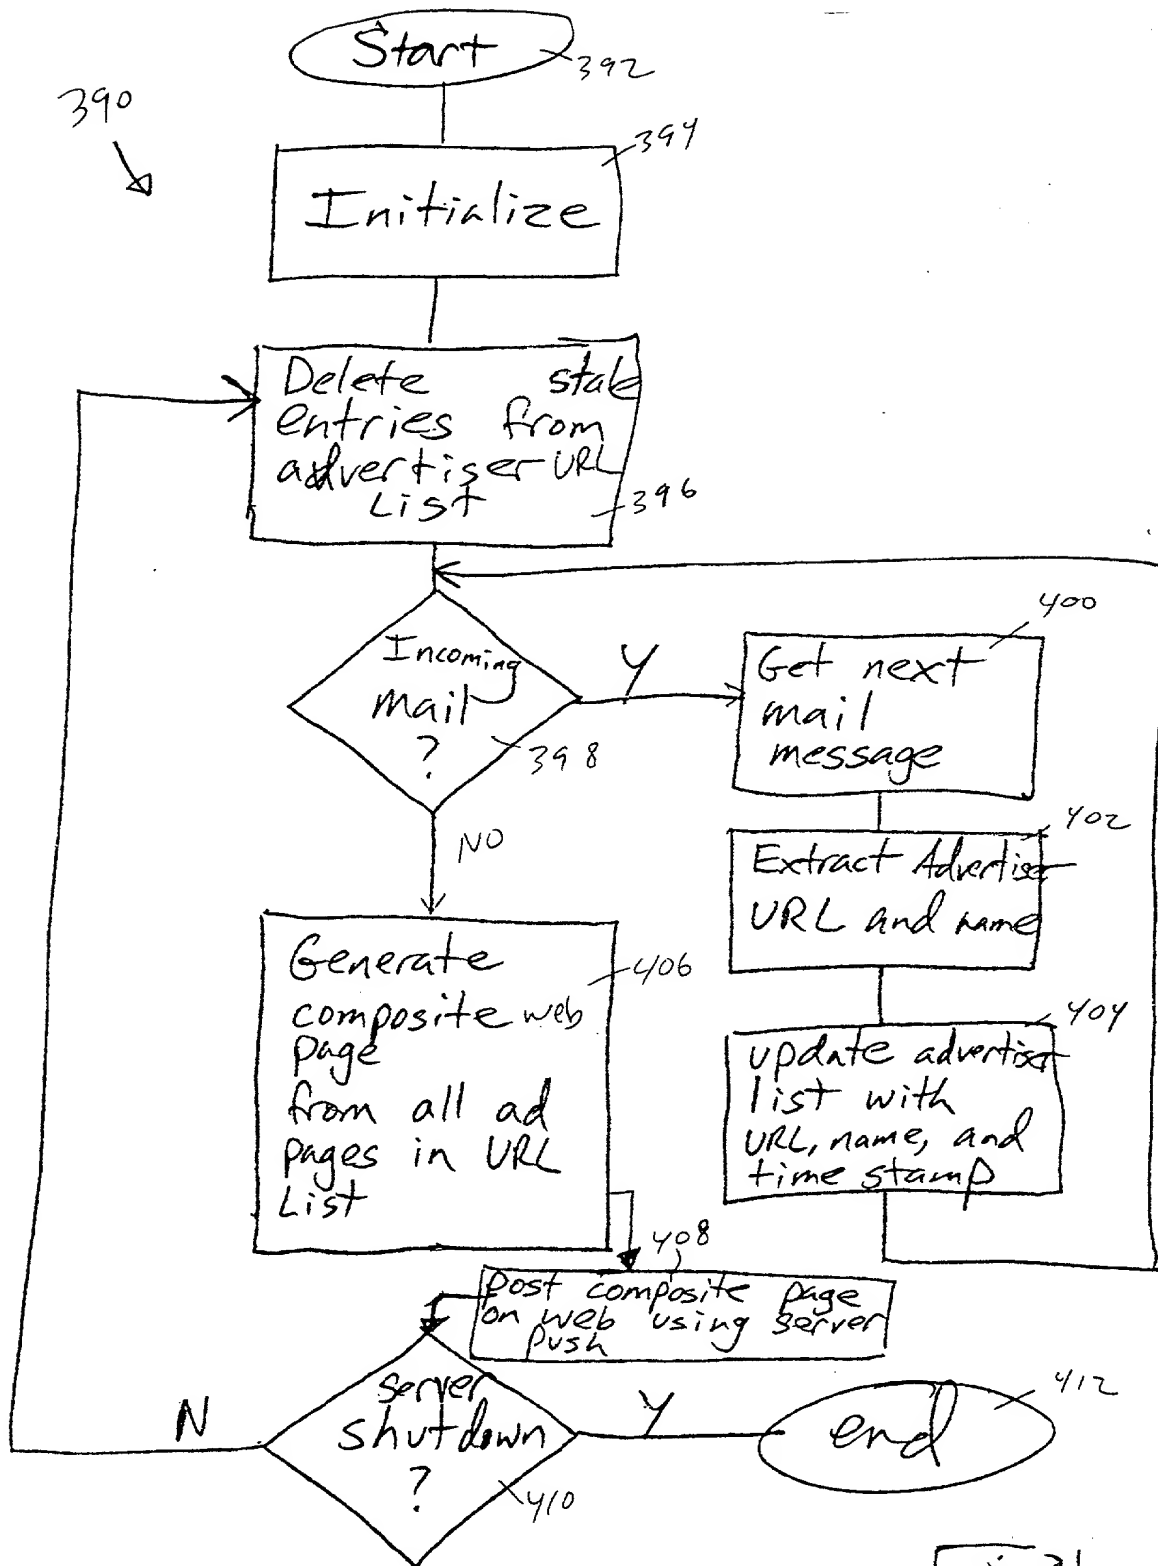 Start
392
390
394
Initialize
Delete stale
entries from
advertiser URL
List
396
Incoming
mail
?
398
Y
NO
400
Get next
mail
message
402
Extract Advertiser
URL and name
404
update advertiser
list with
URL, name, and
time stamp
Generate
composite web
page
from all ad
pages in URL
List
406
408
post composite page
on web using server
push
server
shutdown
?
410
N
Y
end
412
31